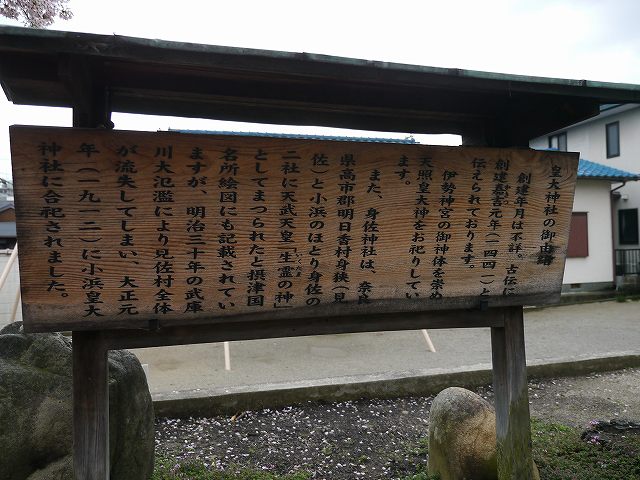 皇大神社の御由緒
創建年月は不詳。古伝に
創建嘉吉元年(一四四一)と
伝えられております。
伊勢神宮の御神体を崇め
天照皇大神をお祀りしてい
ます。
また、身佐神社は、奈良
県高市郡明日香村身狭(見
佐)と小浜のほとり身佐の
二社に天武天皇「生霊の神」
としてまつられたと摂津国
名所絵図にも記載されてい
ますが、明治三十年の武庫
川大氾濫により見佐村全体
が流失してしまい、大正元
年(一九一二)に小浜皇大
神社に合祀されました。